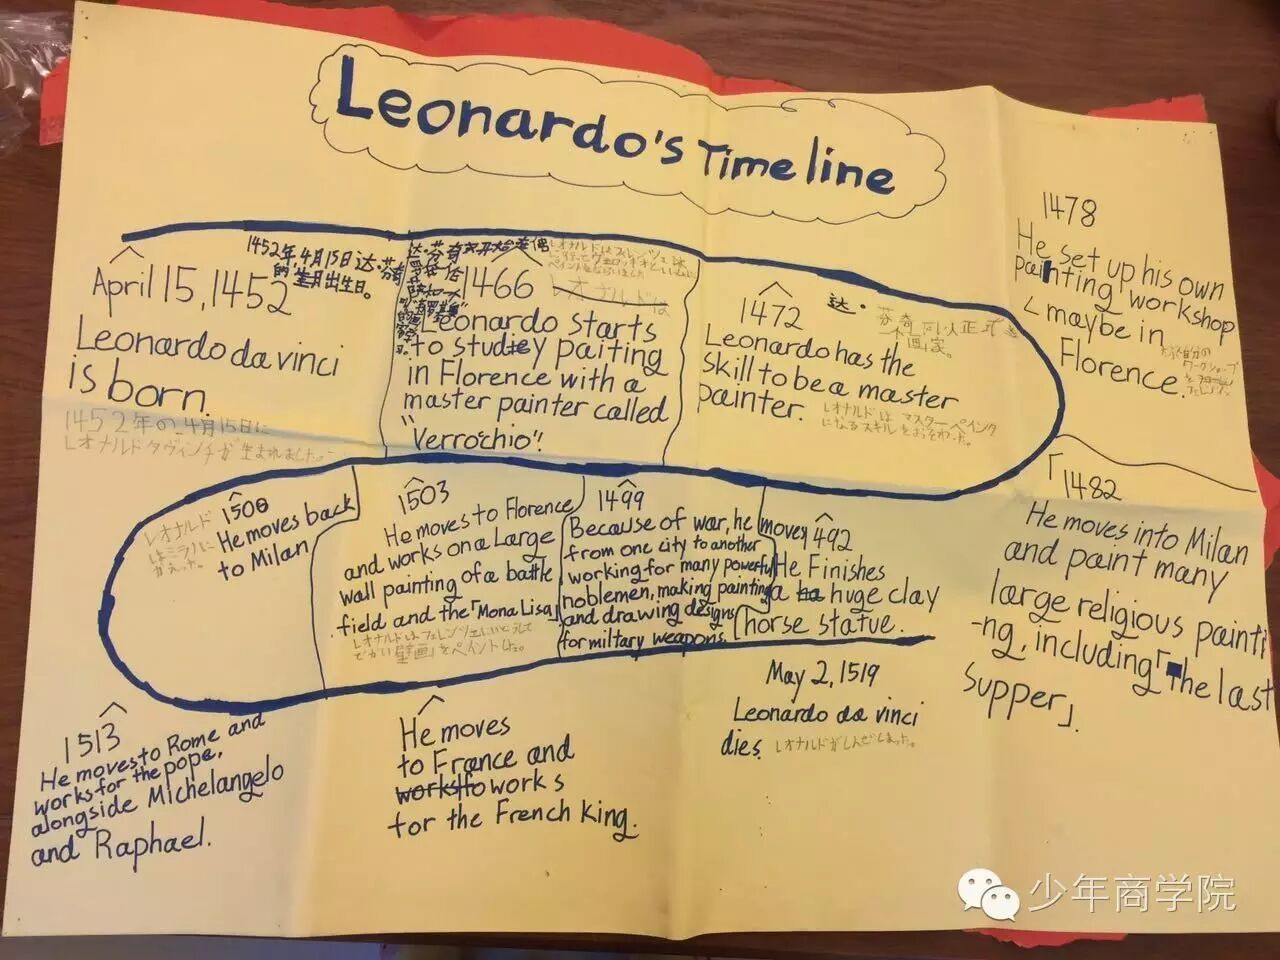 Leonardo's Timeline
April 15, 1452
1452年,4月15日达·芬奇
的,生月出生日。
Leonardo da vinci
is born.
1452年の4月15日に
レオナルドダヴィンチが生まれました。
1466
レオナルドは
Leonardo starts
to study paiting
in Florence with a
master painter called
"Verrochio"!
1472
达·芬奇可以正式
画家。
Leonardo has the
skill to be a master
painter.
レオナルドはマスターペインタ
になるスキルをおそわった。
1478
He set up his own
painting workshop
maybe in
Florence.
「1482
He moves into Milan
and paint many
large religious painti
-ng, including「The last
supper」.
1492
He Finishes
a huge clay
horse statue.
1499
Because of war, he moves
from one city to another
working for many powerful
noblemen, making painting
and drawing designs
for miltary weapons.
1503
He moves to Florence
and works on a Large
wall painting of a battle
field and the「Mona Lisa」
レオナルドはフェレンツェにいどうして
でかい「壁画」をペイントした。
1506
He moves back
to Milan
レオナルド
はミラノに
かえった。
1513
He moves to Rome and
works for the pope,
alongside Michelangelo
and Raphael.
He moves
to France and
works
for the French King.
May 2, 1519
Leonardo da vinci
dies.
レオナルドがしんでしまった。
少年商学院